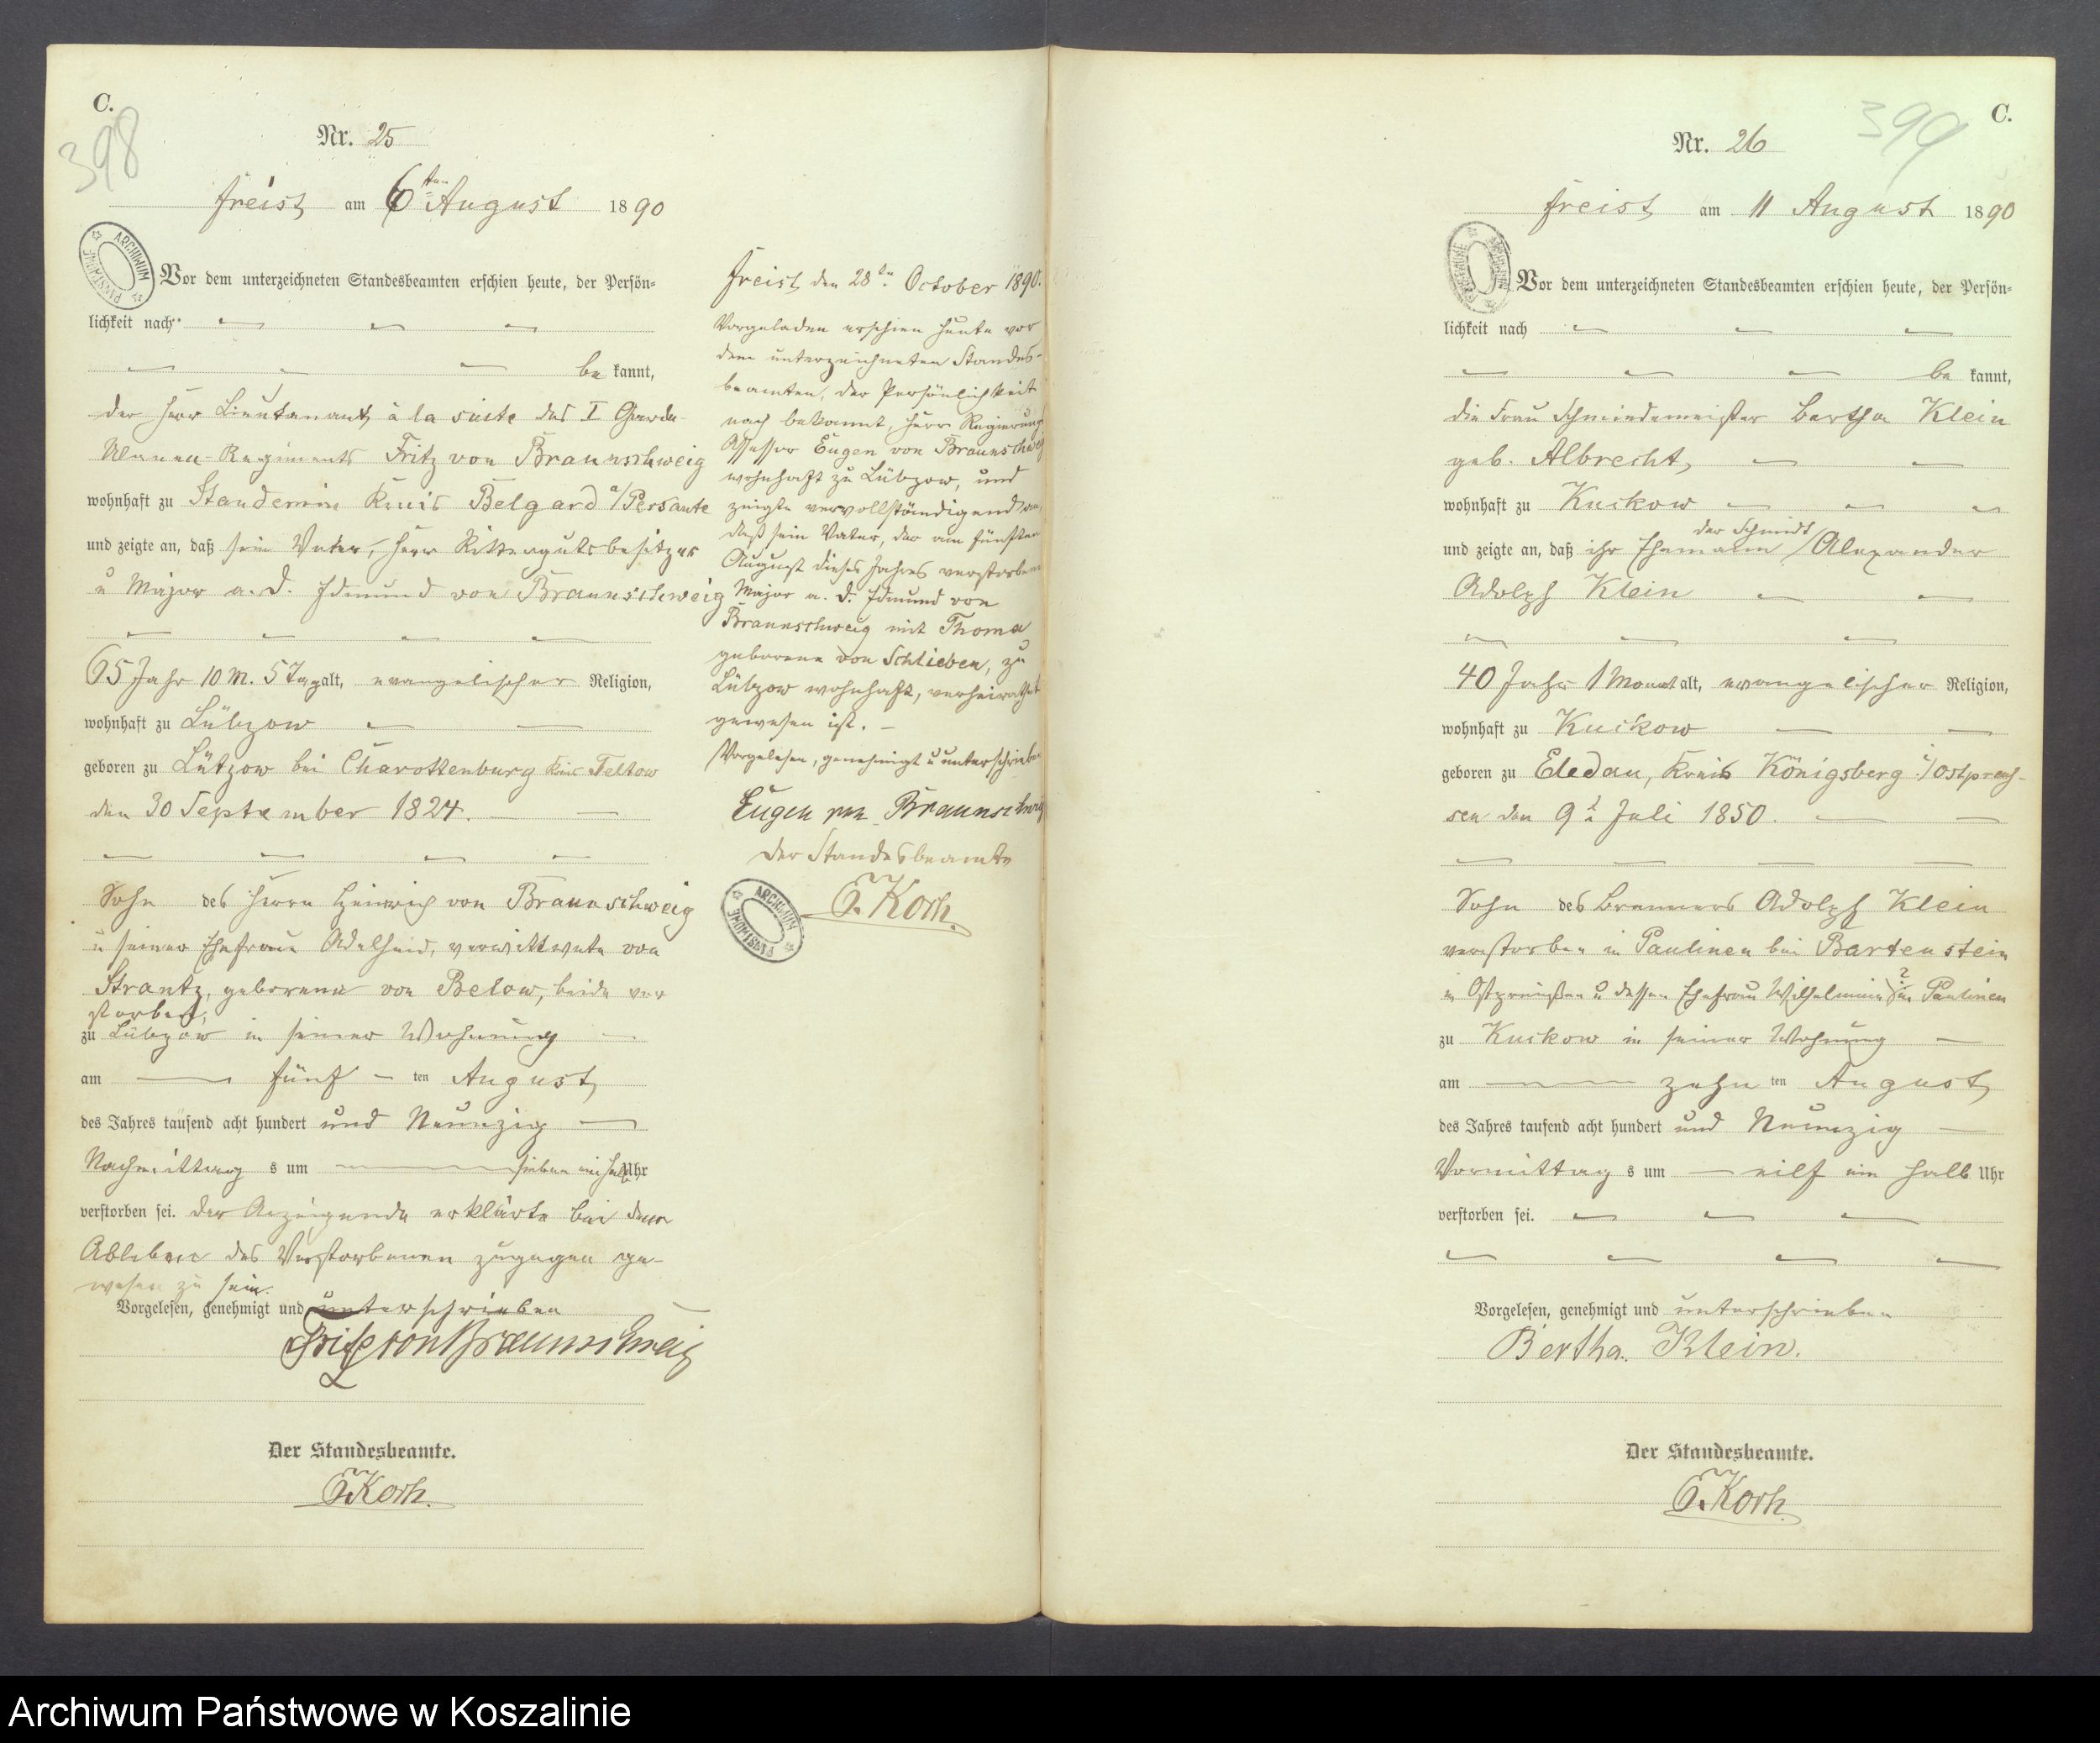 C.
398
Nr. 25
Freist am 6ten August 1890
ARCHIWUM PAŃSTWOWE
Vor dem unterzeichneten Standesbeamten erschien heute, der Persön=
lichkeit nach
be kannt,
der Herr Lieutenant à la suite des I Garde-
Ulanen-Regiments Fritz von Braunschweig
wohnhaft zu Standemin Kreis Belgard a/Persante
und zeigte an, daß sein Vater, Herr Rittergutsbesitzer
u Major a. D. Edmund von Braunschweig
65 Jahr 10 M. 5 Tag alt, evangelischer Religion,
wohnhaft zu Lübzow
geboren zu Lützow bei Charottenburg Kreis Teltow
den 30 September 1824.
Sohn des Herrn Heinrich von Braunschweig
u seiner Ehefrau Adelheid, verwittwete von
Strantz, geborene von Below, beide ver
storben,
zu Lübzow in seiner Wohnung
am fünf ten August
des Jahres tausend acht hundert und Neunzig
Nachmittag s um sieben ein halb Uhr
verstorben sei. Der Anzeigende erklärte bei dem
Ableben des Verstorbenen zugegen ge-
wesen zu sein.
Vorgelesen, genehmigt und unterschrieben
Fritz von Braunschweig
Der Standesbeamte.
E. Koch.
Freist den 28ten October 1890.
Vorgeladen erschien heute vor
dem unterzeichneten Standes-
beamten, der Persönlichkeit
nach bekannt, Herr Regierungs
Assessor Eugen von Braunschweig
wohnhaft zu Lübzow, und
zeigte vervollständigend an,
daß sein Vater, der am fünften
August dieses Jahres verstorbene
Major a. D. Edmund von
Braunschweig mit Thoma
geborene von Schlieben, zu
Lübzow wohnhaft, verheirathet
gewesen ist.
Vorgelesen, genehmigt u unterschrieben
Eugen von Braunschweig
Der Standesbeamte
E. Koch.
ARCHIWUM PAŃSTWOWE
C.
399
Nr. 26
Freist am 11 August 1890
ARCHIWUM PAŃSTWOWE
Vor dem unterzeichneten Standesbeamten erschien heute, der Persön=
lichkeit nach
be kannt,
die Frau Schmiedemeister Bertha Klein
geb. Albrecht,
wohnhaft zu Kuckow
der Schmidt
und zeigte an, daß ihr Ehemann / Alexander
Adolph Klein
40 Jahr 1 Monat alt, evangelischer Religion,
wohnhaft zu Kuckow
geboren zu Eledau, Kreis Königsberg i/Ostpreus-
sen den 9t Juli 1850.
Sohn des Brenners Adolph Klein
verstorben in Paulinen bei Bartenstein
in Ostpreußen u dessen Ehefrau Wilhelmine ? in Paulinen
zu Kuckow in seiner Wohnung
am zehn ten August
des Jahres tausend acht hundert und Neunzig
Vormittag s um eilf ein halb Uhr
verstorben sei.
Vorgelesen, genehmigt und unterschrieben
Bertha Klein.
Der Standesbeamte.
E. Koch.
Archiwum Państwowe w Koszalinie